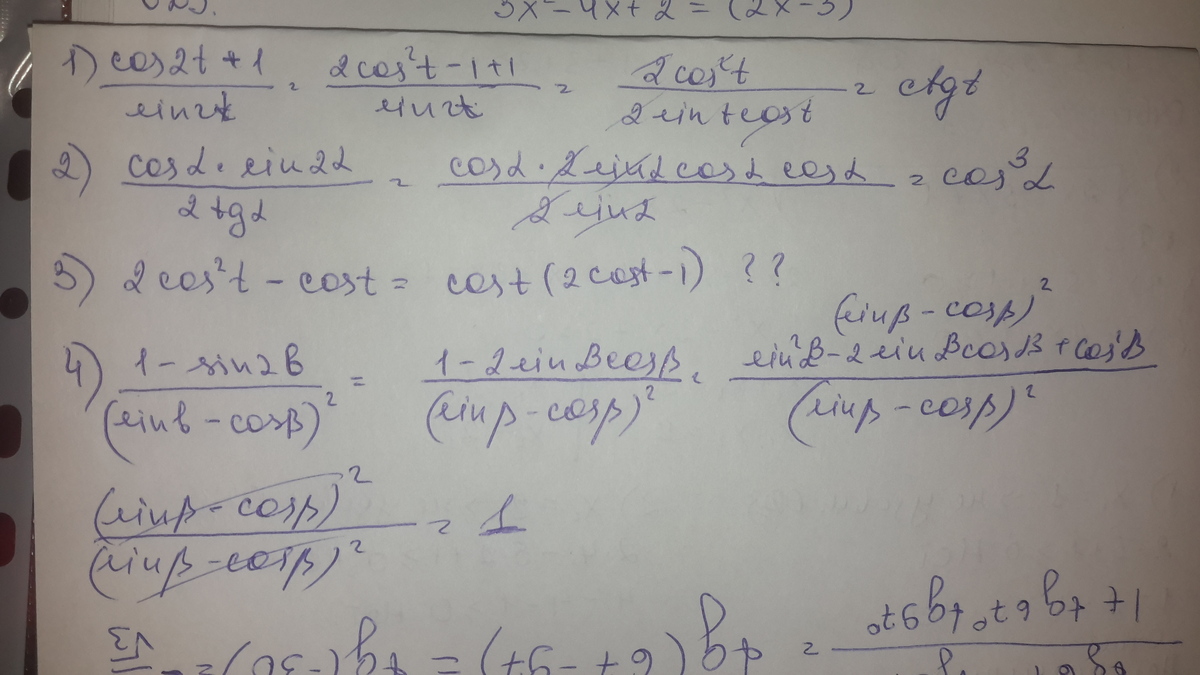 3x² - 4x + 2 = (2x - 3)
1) (cos2t + 1)/(sin2t) = (2cos²t - 1 + 1)/(sin2t) = (2cos²t)/(2sint cost) = ctgt
2) (cosα · sin2α)/(2tgα) = (cosα · 2sinα cosα cosα)/(2sinα) = cos³α
3) 2cos²t - cost = cost(2cost - 1) ??
(sinβ - cosβ)²
4) (1 - sin2β)/(sinβ - cosβ)² = (1 - 2sinβcosβ)/(sinβ - cosβ)² = (sin²β - 2sinβcosβ + cos²β)/(sinβ - cosβ)²
(sinβ - cosβ)²/(sinβ - cosβ)² = 1